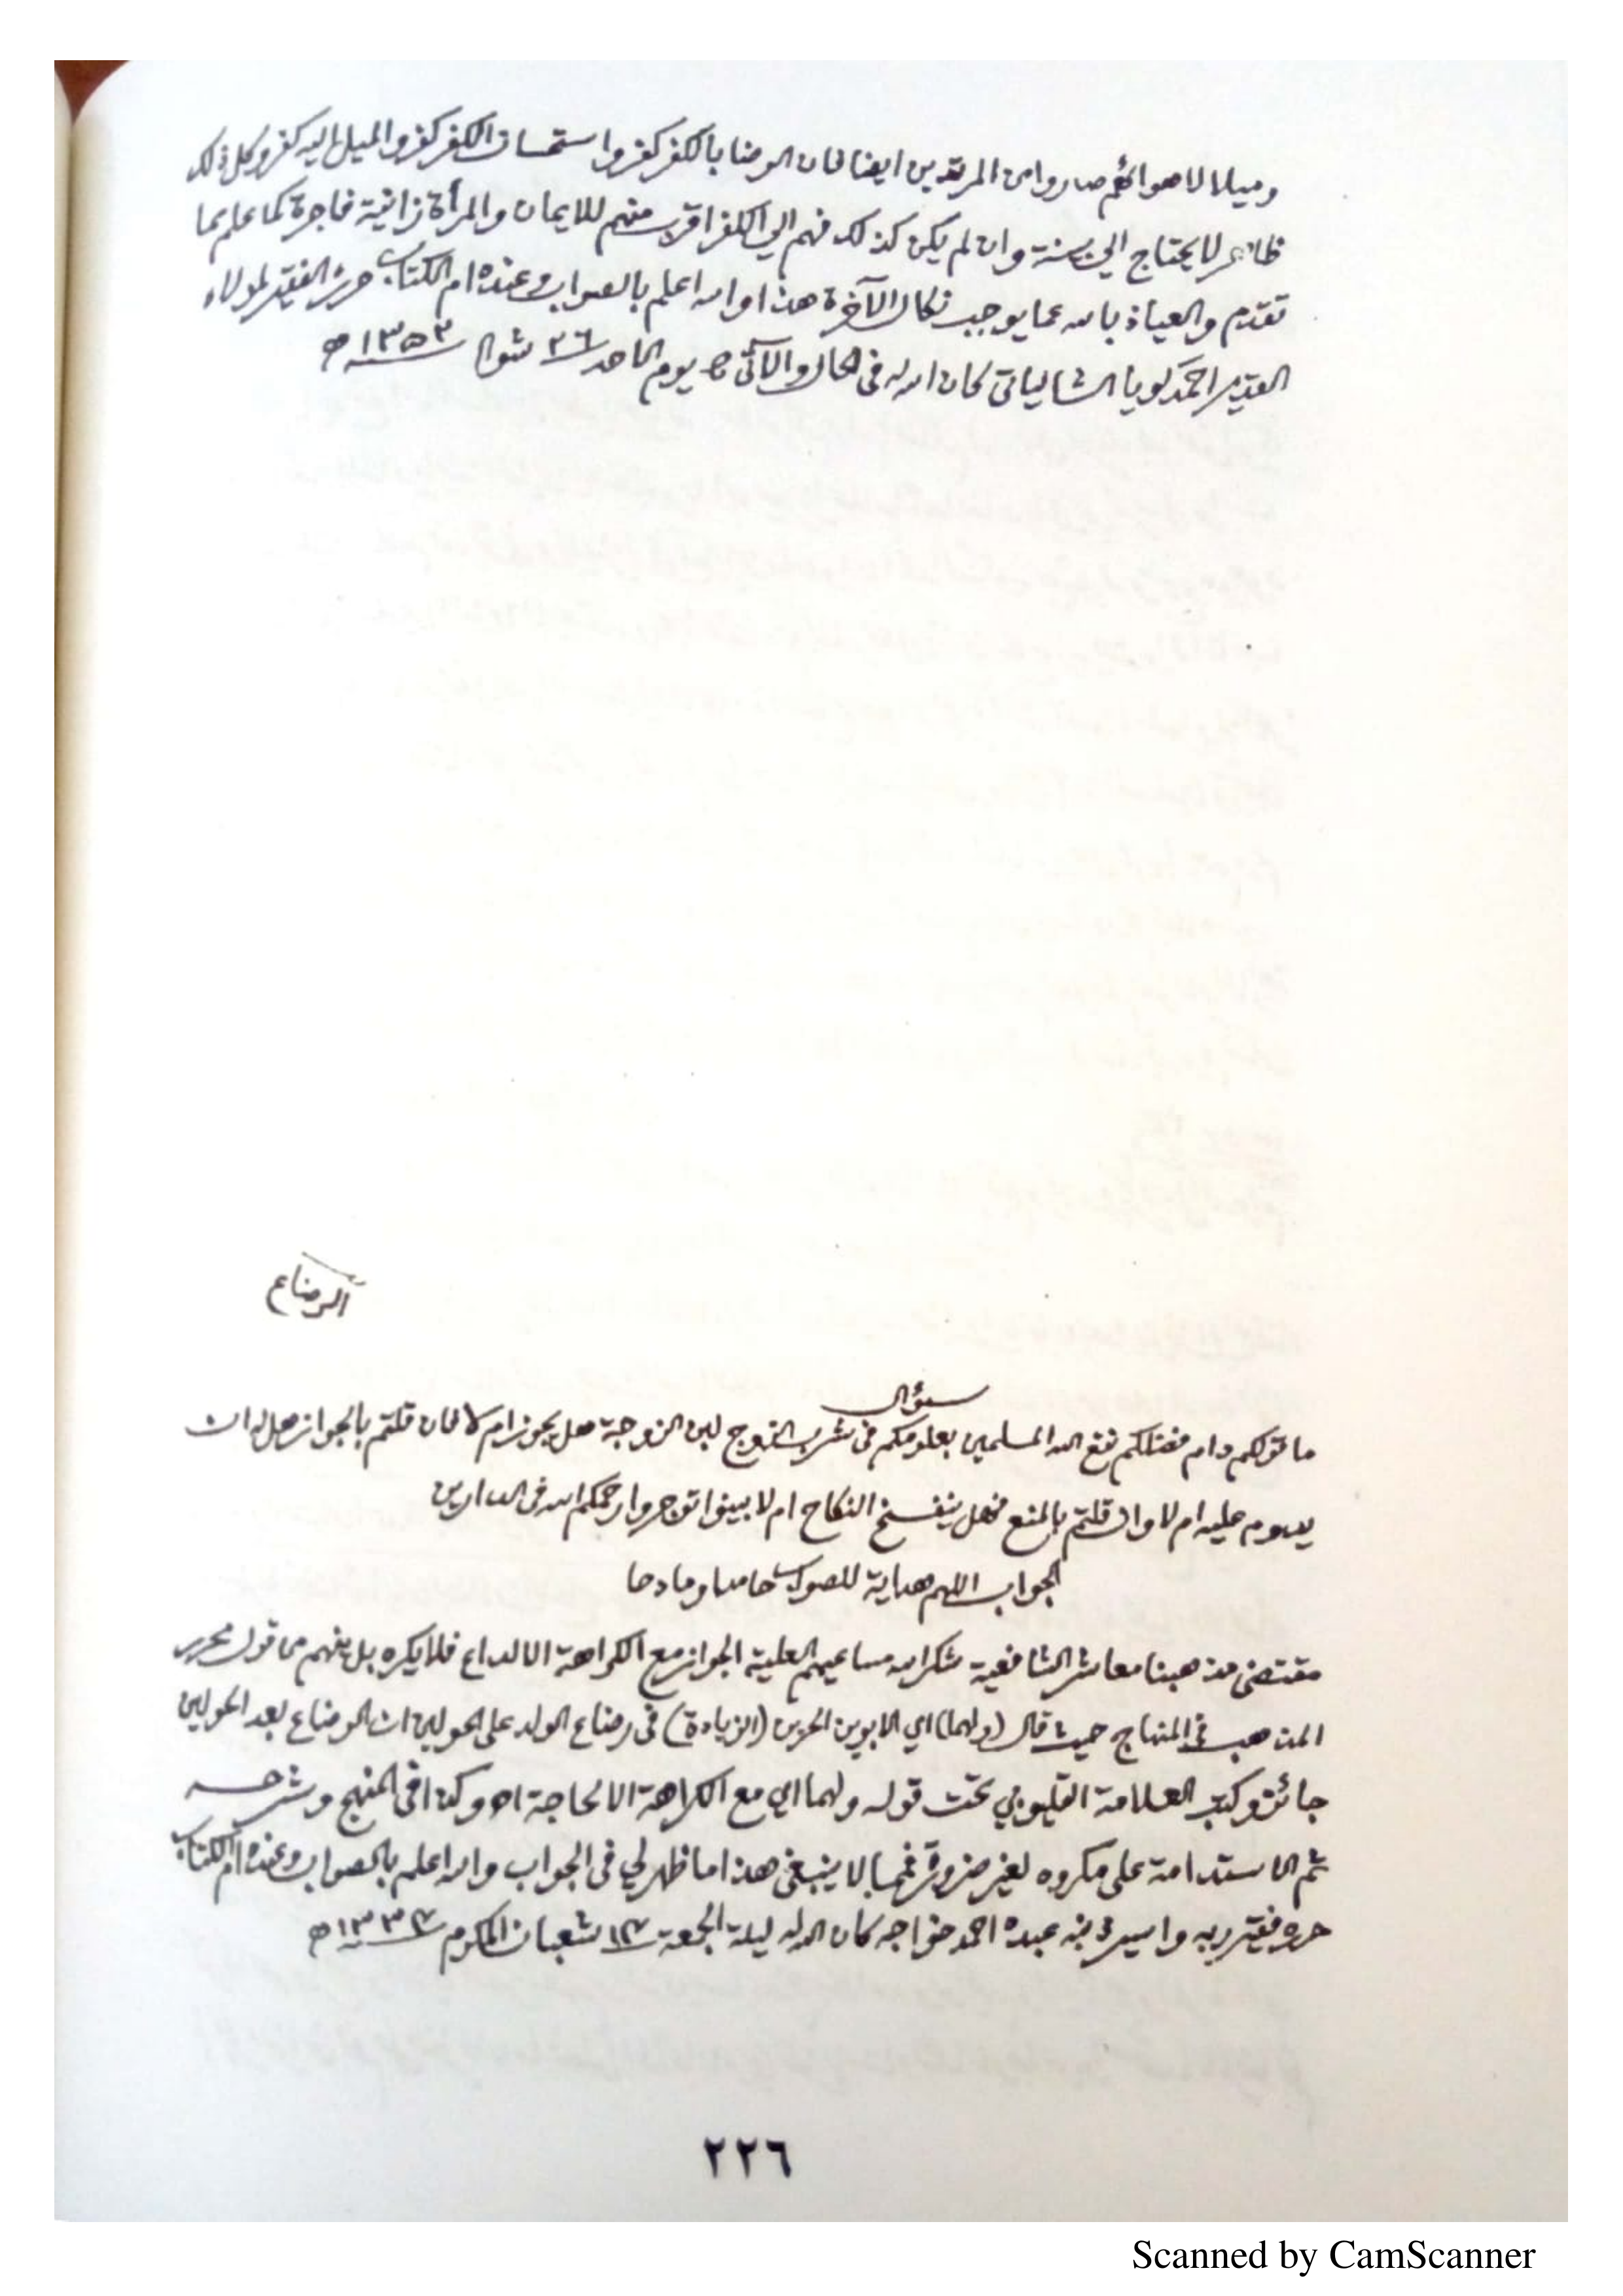 وميلا لاهوائهم صاروا من المرتدين ايضا فان الرضا بالكفر كفر واستحسان الكفر كفر والميل اليه كفر وكل ذلك
ظاهر لا يحتاج الى بينة وان لم يكن كذلك فهم الى الكفر اقرب منهم للايمان والمرأة زانية فاجرة كما علم بما
تقدم والعياذ بالله عما يوجب نكال الآخرة هذا والله اعلم بالصواب وعنده ام الكتاب حرره الفقير لمولاه
القدير احمد كويا الشالياتي كان الله له في الحال والآتي يوم الاحد ٢٦ شوال ١٣٥٣ ه
الرضاع
سؤال
ما قولكم دام فضلكم نفع الله المسلمين بعلومكم في شرب الزوج لبن الزوجة هل يجوز ام لا فان قلتم بالجواز هل له ان
يدوم عليه ام لا وان قلتم بالمنع فهل ينفسخ النكاح ام لا بينوا توجروا رحمكم الله في الدارين
الجواب اللهم هداية للصواب حامدا ومادحا
مقتضى مذهبنا معاشر الشافعية شكر الله مساعيهم العلية الجواز مع الكراهة الا لداع فلا يكره بل يفهم من قول محرر
المذهب في المنهاج حيث قال (ولهما) اي الابوين الحرين (الزيادة) في رضاع الولد على الحولين ان الرضاع بعد الحولين
جائز وكتب العلامة القليوبي تحت قوله ولهما اي مع الكراهة الا لحاجة اه وكذا في المنهج وشرحه
ثم الاستدامة على مكروه لغير ضرورة فمما لا ينبغي هذا ما ظهر لي في الجواب والله اعلم بالصواب وعنده ام الكتاب
حرره فقير ربه واسير ذنبه عبده احمد خواجه كان الله له ليلة الجمعة ١٧ شعبان المكرم ١٣٣٧ ه
٢٢٦
Scanned by CamScanner